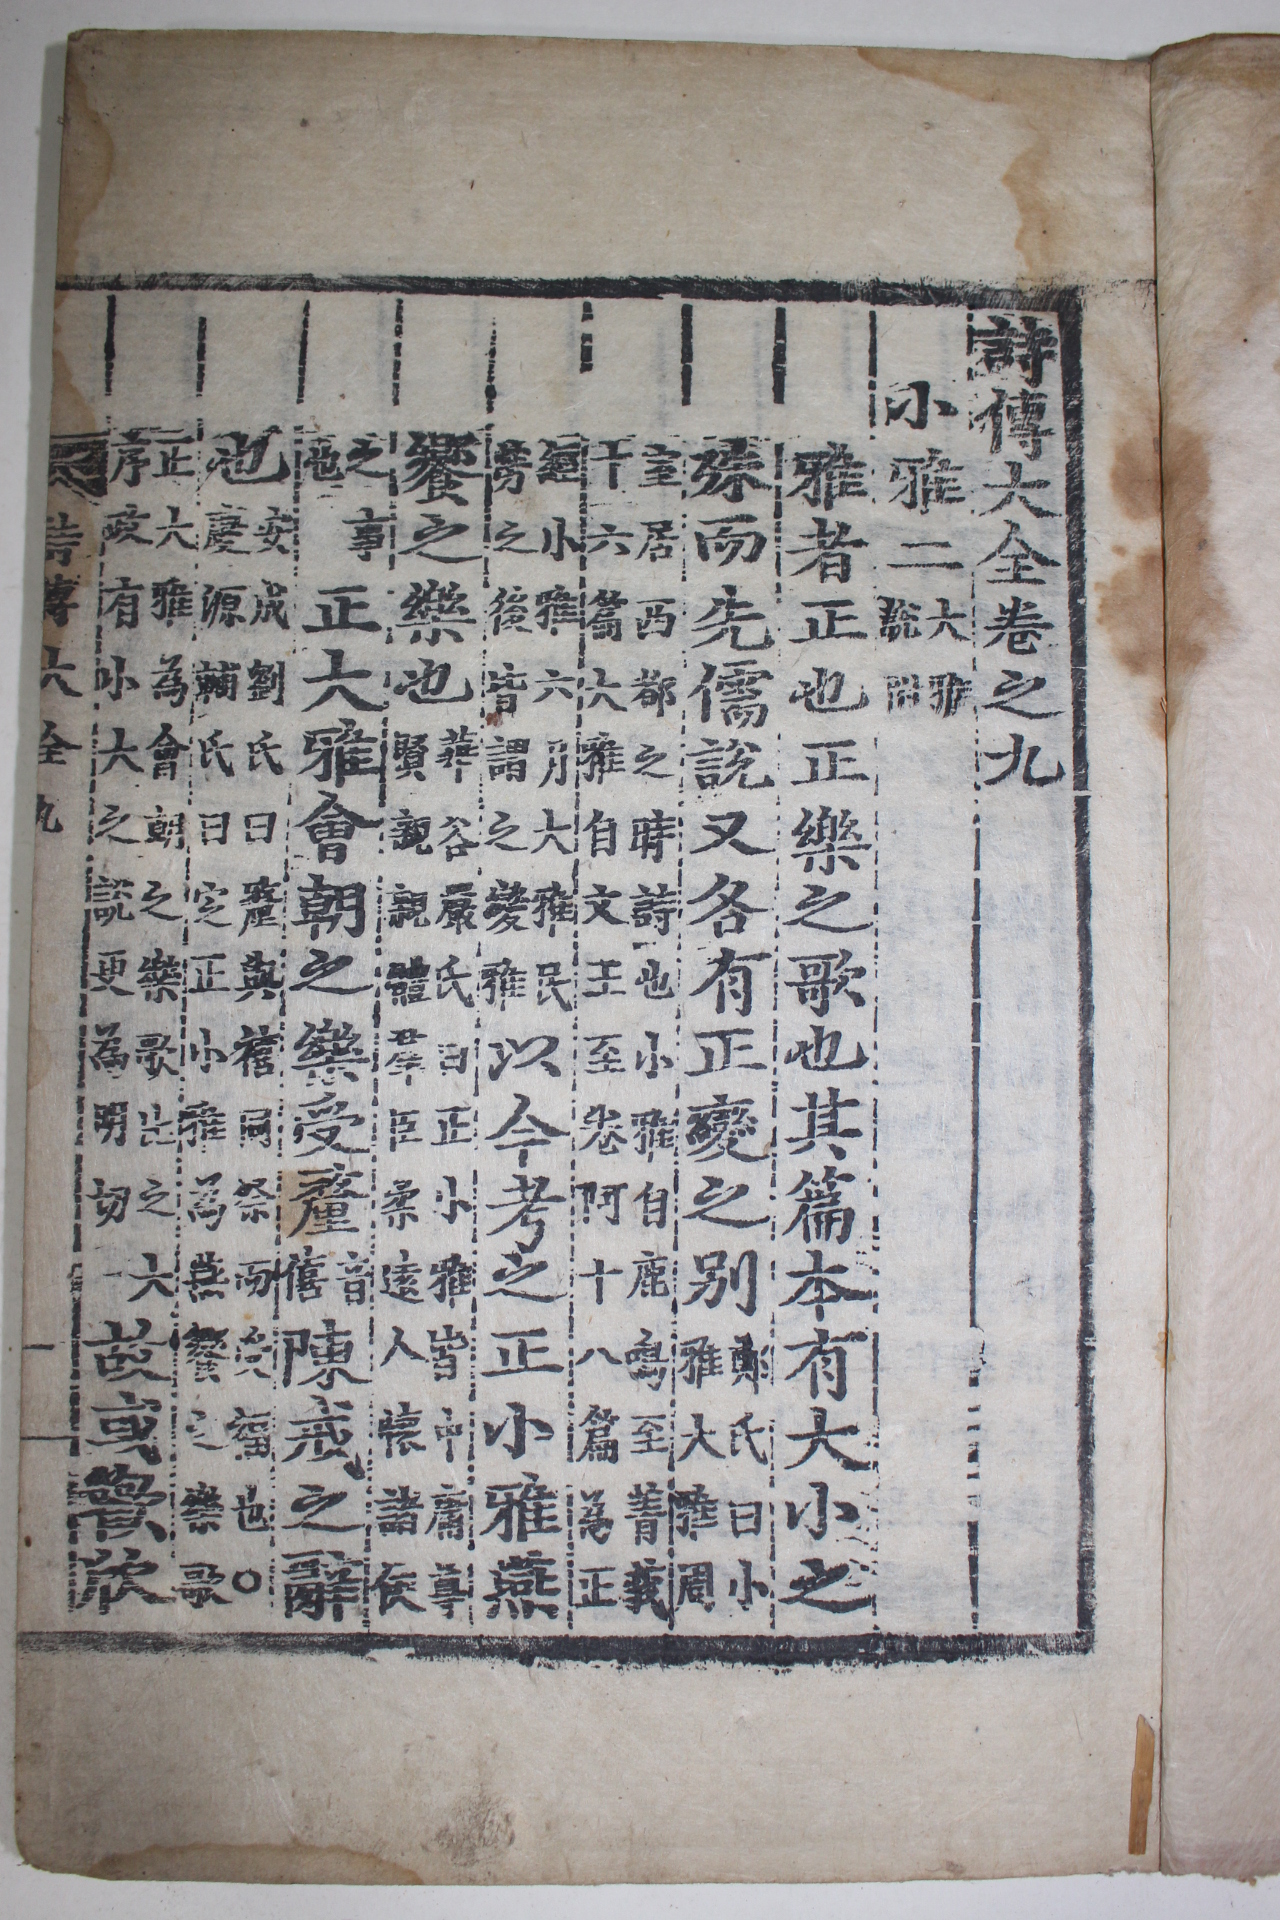 詩傳大全卷之九
小雅二大雅說附
雅者正也正樂之歌也其篇本有大小之
殊而先儒說又各有正變之別鄭氏曰小雅大雅周
室居西都之時詩也小雅自鹿鳴至菁莪十六篇大雅自文王至卷阿十八篇為正
經小雅六月大雅民勞之後皆謂之變雅以今考之正小雅燕
饗之樂也華谷嚴氏曰正小雅皆中庸尊賢親親體羣臣柔遠人懷諸侯
之事也正大雅會朝之樂受釐音僖陳戒之辭
也安成劉氏曰釐與禧同祭而受福也○慶源輔氏曰定正小雅為燕饗之樂歌
正大雅為會朝之樂歌比之大序政有小大之說更為明切故或歡欣
詩傳大全 九 一